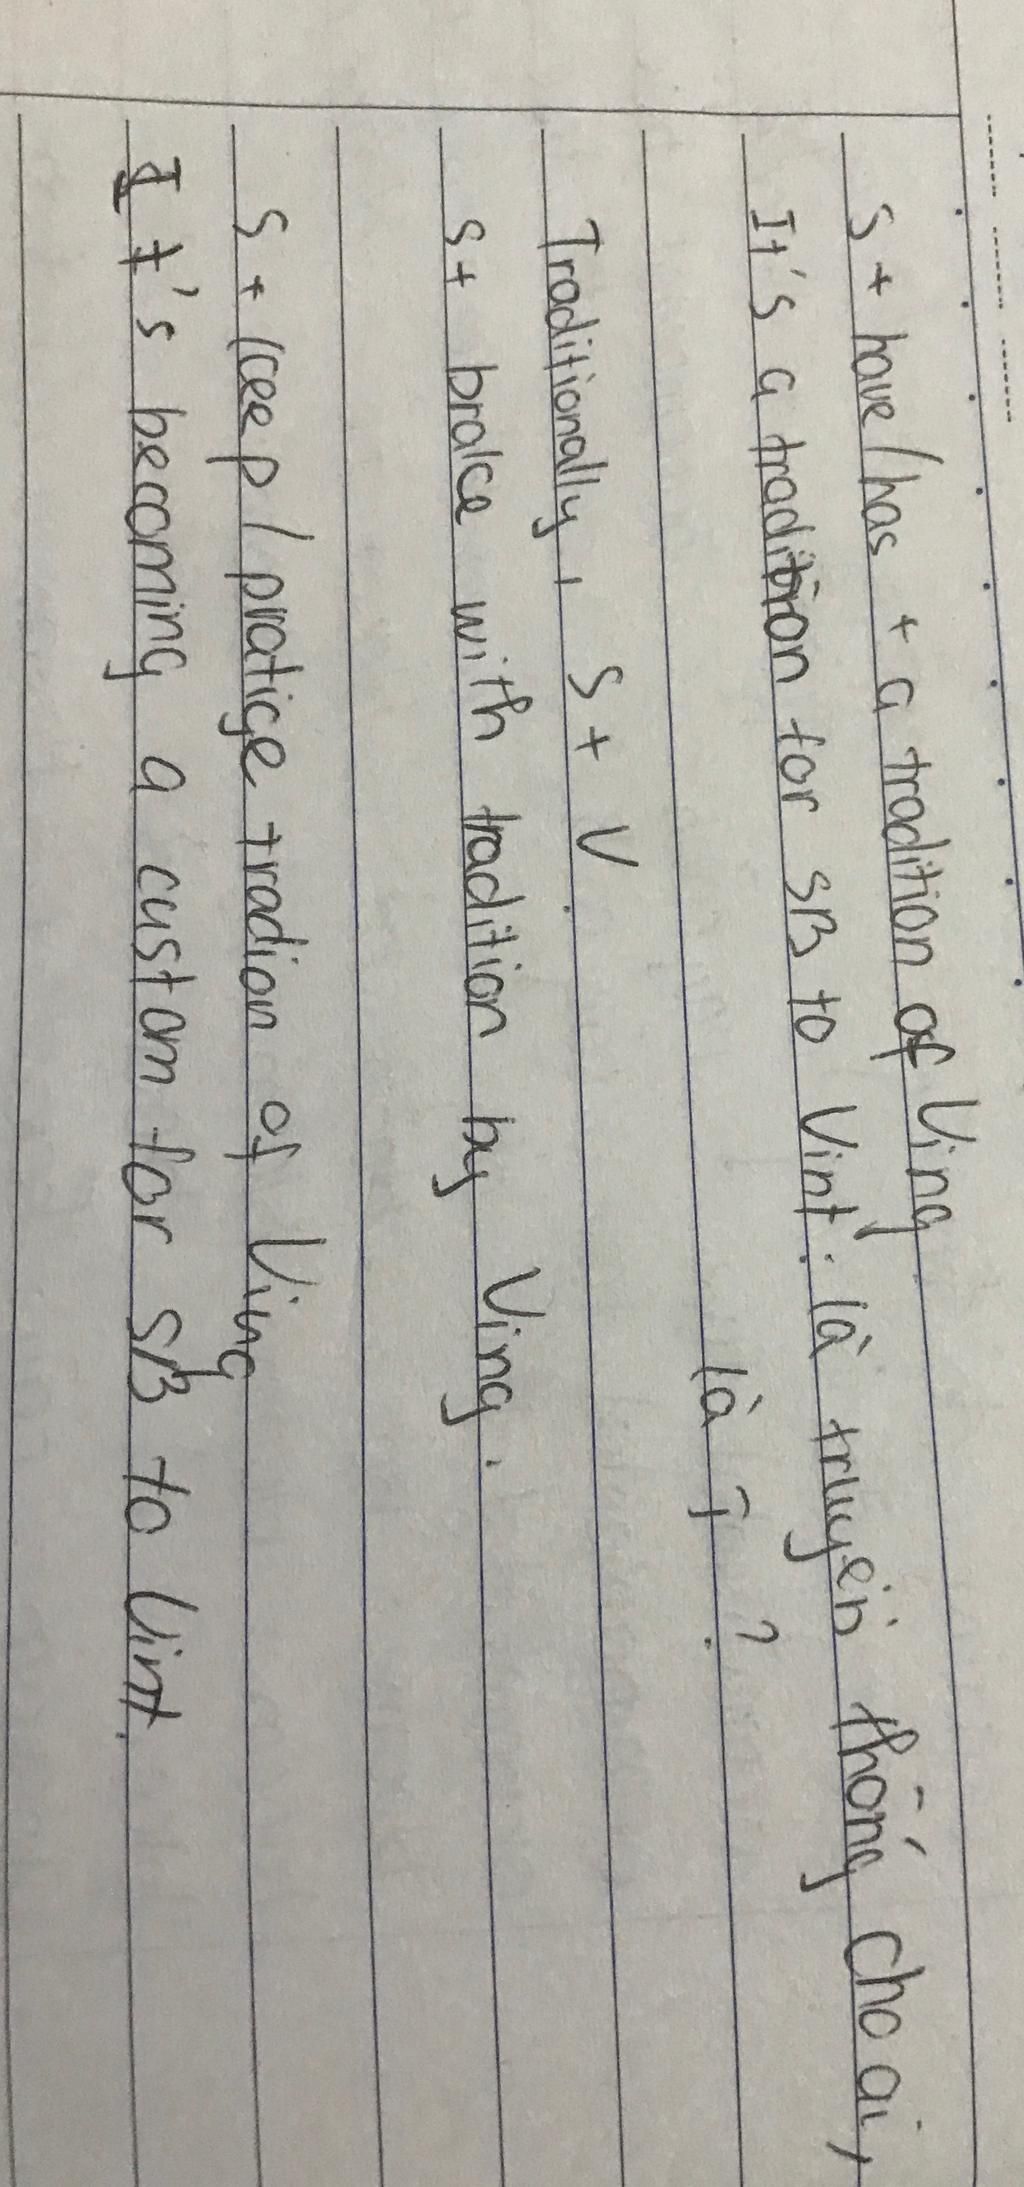 S + have/has + a tradition of Ving
It's a tradition for SB to Vinf: là truyền thống cho ai,
là j ?
Traditionally, S + V
S+ brake with tradition by Ving.
S + keep / pratice tradion of Ving
It's becoming a custom for SB to Vinf.